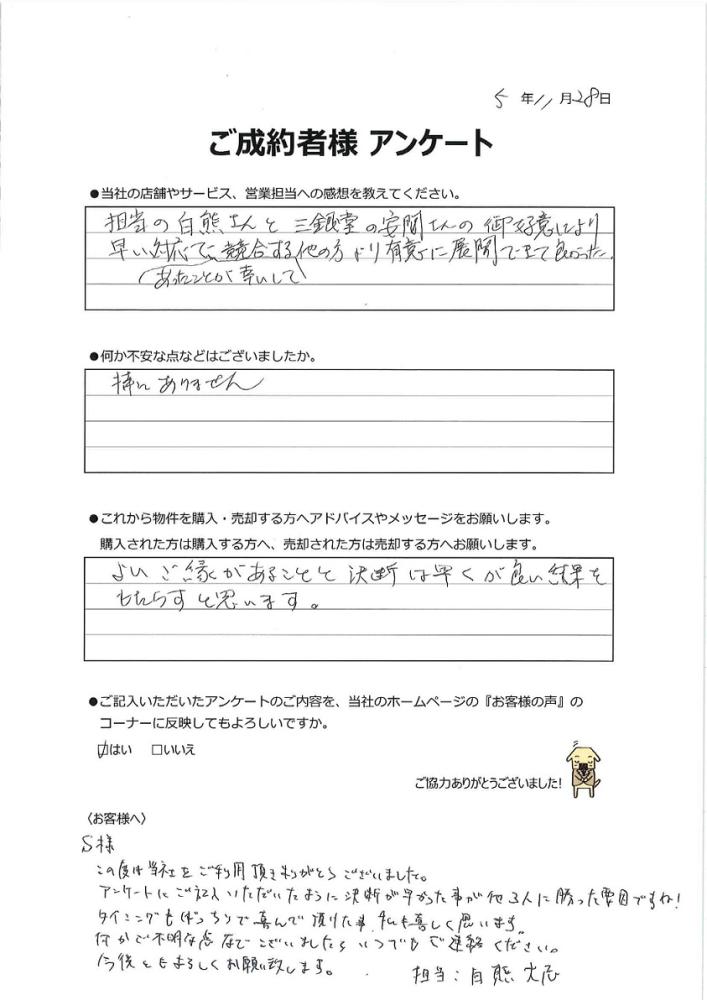 5 年 11 月 28 日
ご成約者様 アンケート
●当社の店舗やサービス、営業担当への感想を教えてください。
担当の白熊さんと三銀堂の安間さんの御好意により
早い対応で、競合する他の方より有意に展開できて良かった。
あったことが幸いして
●何か不安な点などはございましたか。
特にありません
●これから物件を購入・売却する方へアドバイスやメッセージをお願いします。
購入された方は購入する方へ、売却された方は売却する方へお願いします。
よいご縁があることと決断は早くが良い結果を
もたらすと思います。
●ご記入いただいたアンケートのご内容を、当社のホームページの『お客様の声』の
コーナーに反映してもよろしいですか。
☑はい □いいえ
ご協力ありがとうございました!
〈お客様へ〉
S様
この度は当社をご利用頂きありがとうございました。
アンケートにご記入いただいたように決断が早かった事が他3人に勝った要因ですね!
タイミングもばっちりで喜んで頂けた事、私も喜しく思います。
何かご不明な点などございましたらいつでもご連絡ください。
今後ともよろしくお願い致します。
担当:白熊